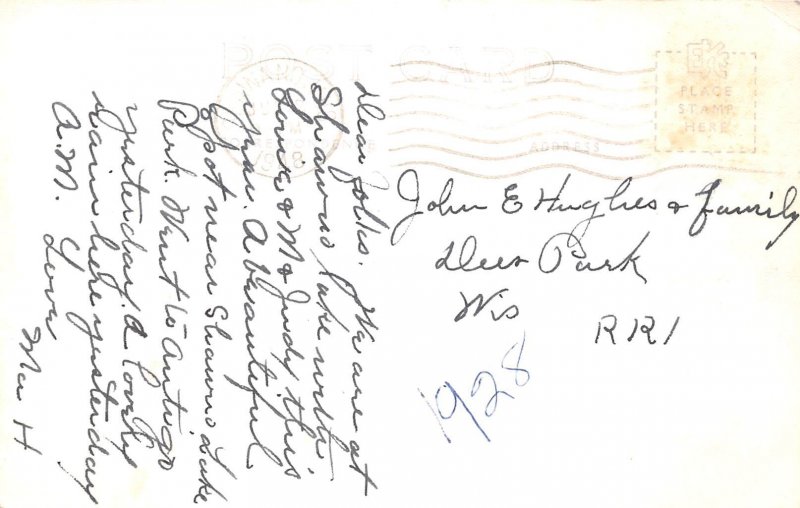 POST CARD
PLACE
STAMP
HERE
ADDRESS
Dear Folks. We are at
Shawno Lake with
& M & Judy this
A beautiful
spot near Shawno Lake
Park. Went to Antigo
yesterday. A lovely
rain here yesterday
A.M. Love
Ma H
John E Hughes & Family
Deer Park
Wis
RR1
1928